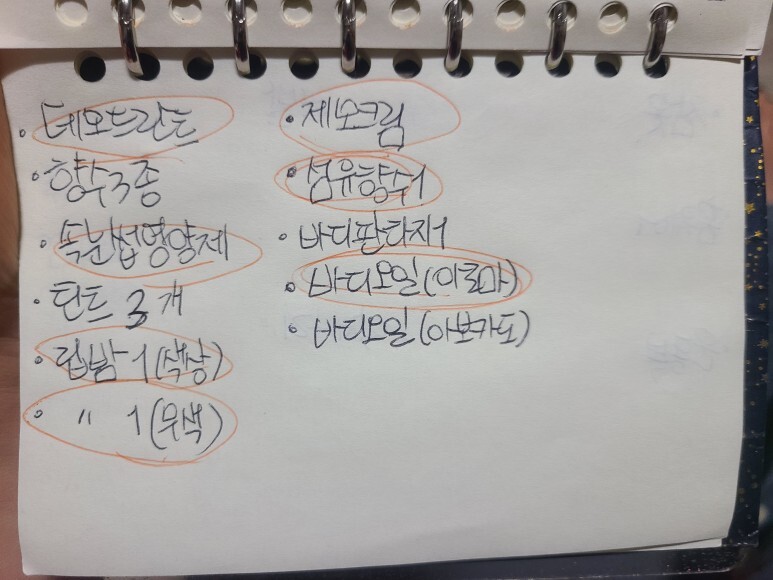 · 데오드란트
· 향수 3종
· 속눈썹영양제
· 틴트 3개
· 립밤 1 (색상)
· 〃 1 (무색)
· 제모크림
· 섬유향수1
· 바디판타지1
· 바디오일(아로마)
· 바디오일(아보카도)